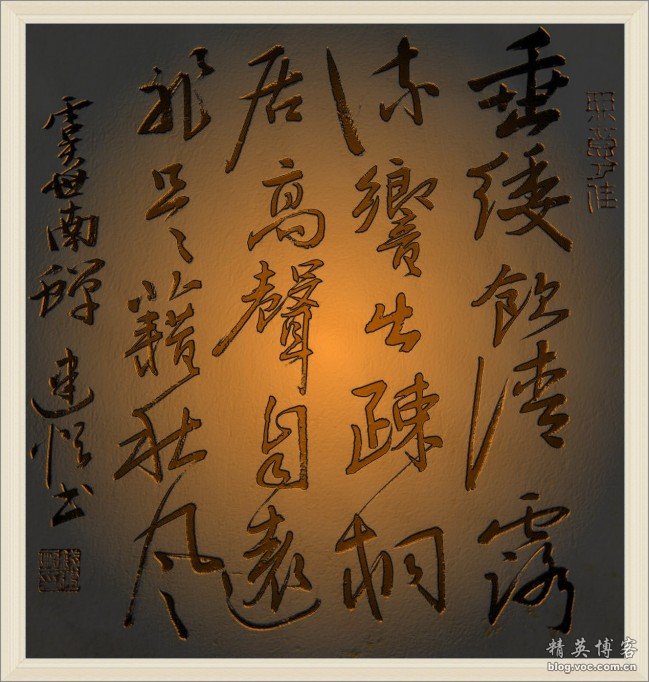 垂緌飲清露
流響出疎桐
居高聲自遠
非是籍秋風
虞世南蟬 建书
精英博客
blog.voc.com.cn